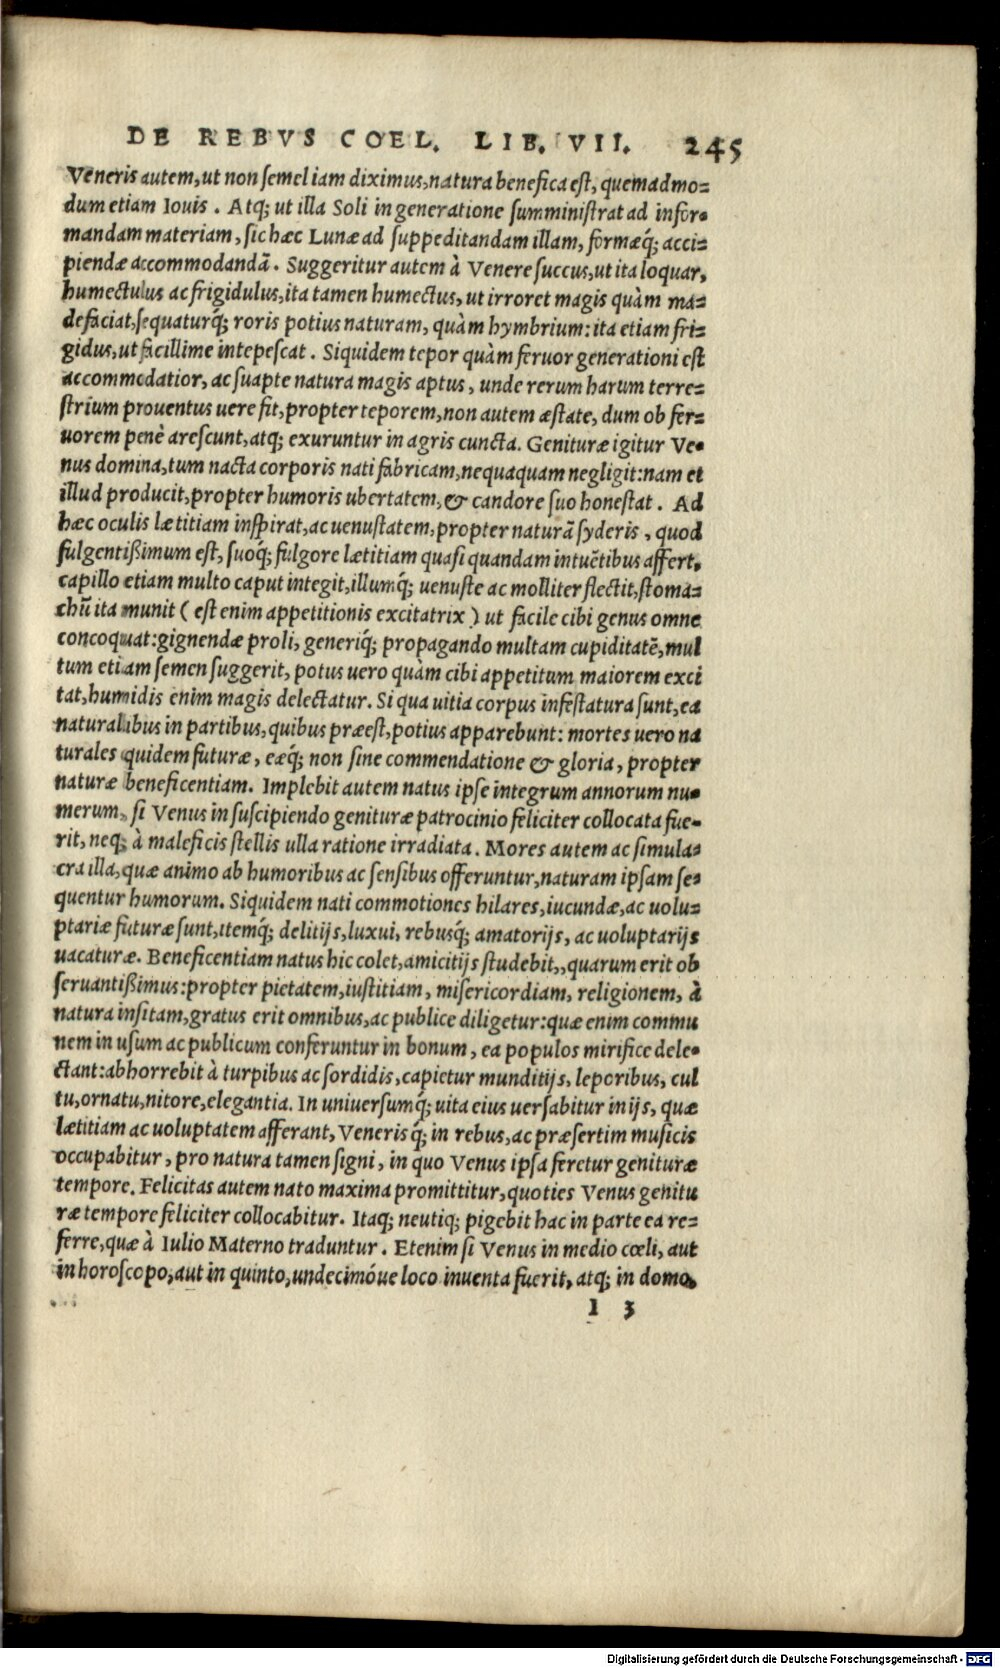 DE REBVS COEL. LIB. VII. 245
Veneris autem, ut non semel iam diximus, natura benefica est, quemadmo=
dum etiam Iouis. Atq; ut illa Soli in generatione sumministrat ad infor=
mandam materiam, sic hæc Lunæ ad suppeditandam illam, formæq́; acci=
piendæ accommodandā. Suggeritur autem à Venere succus, ut ita loquar,
humectulus ac frigidulus, ita tamen humectus, ut irroret magis quàm ma=
defaciat, sequaturq́; roris potius naturam, quàm hymbrium: ita etiam fri=
gidus, ut facillime intepescat. Siquidem tepor quàm feruor generationi est
accommodatior, ac suapte natura magis aptus, unde rerum harum terre=
strium prouentus uere fit, propter teporem, non autem æstate, dum ob fer=
uorem penè arescunt, atq; exuruntur in agris cuncta. Genituræ igitur Ve=
nus domina, tum nacta corporis nati fabricam, nequaquam negligit: nam et
illud producit, propter humoris ubertatem, & candore suo honestat. Ad
hæc oculis lætitiam inspirat, ac uenustatem, propter naturā syderis, quod
fulgentißimum est, suoq́; fulgore lætitiam quasi quandam intuētibus affert,
capillo etiam multo caput integit, illumq́; uenuste ac molliter flectit, stoma=
chū ita munit (est enim appetitionis excitatrix) ut facile cibi genus omne
concoquat: gignendæ proli, generiq́; propagando multam cupiditatē, mul
tum etiam semen suggerit, potus uero quàm cibi appetitum maiorem exci
tat, humidis enim magis delectatur. Si qua uitia corpus infestatura sunt, ea
naturalibus in partibus, quibus præest, potius apparebunt: mortes uero na
turales quidem futuræ, eæq́; non sine commendatione & gloria, propter
naturæ beneficentiam. Implebit autem natus ipse integrum annorum nu=
merum, si Venus in suscipiendo genituræ patrocinio feliciter collocata fue=
rit, neq; à maleficis stellis ulla ratione irradiata. Mores autem ac simula=
cra illa, quæ animo ab humoribus ac sensibus offeruntur, naturam ipsam se=
quentur humorum. Siquidem nati commotiones hilares, iucundæ, ac uolu=
ptariæ futuræ sunt, itemq́; delitijs, luxui, rebusq́; amatorijs, ac uoluptarijs
uacaturæ. Beneficentiam natus hic colet, amicitijs studebit,, quarum erit ob
seruantißimus: propter pietatem, iustitiam, misericordiam, religionem, à
natura insitam, gratus erit omnibus, ac publice diligetur: quæ enim commu
nem in usum ac publicum conferuntur in bonum, ea populos mirifice dele=
ctant: abhorrebit à turpibus ac sordidis, capietur munditijs, leporibus, cul
tu, ornatu, nitore, elegantia. In uniuersumq́; uita eius uersabitur in ijs, quæ
lætitiam ac uoluptatem afferant, Venerisq́; in rebus, ac præsertim musicis
occupabitur, pro natura tamen signi, in quo Venus ipsa feretur genituræ
tempore. Felicitas autem nato maxima promittitur, quoties Venus genitu
ræ tempore feliciter collocabitur. Itaq; neutiq; pigebit hac in parte ea re=
ferre, quæ à Iulio Materno traduntur. Etenim si Venus in medio cœli, aut
in horoscopo, aut in quinto, undecimóue loco inuenta fuerit, atq; in domo,
l 3
Digitalisierung gefördert durch die Deutsche Forschungsgemeinschaft - DFG